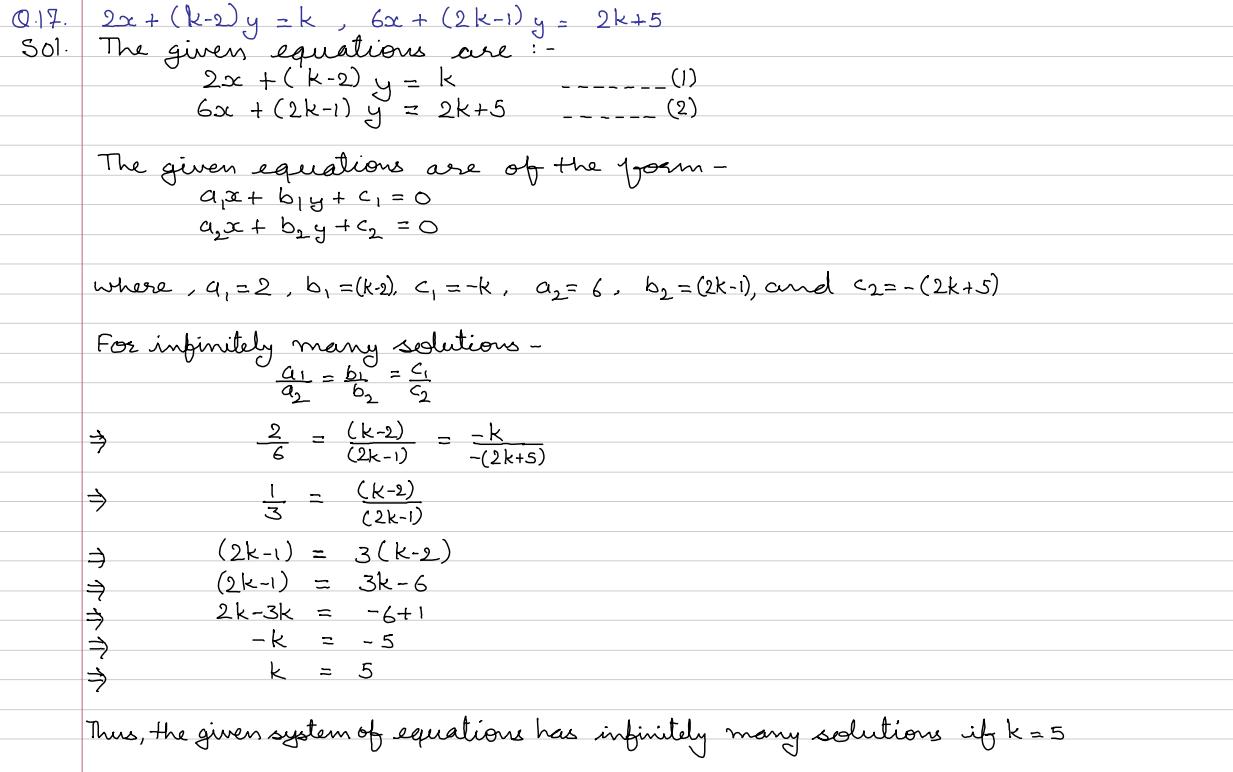 Q.17. 2x + (k-2) y = k , 6x + (2k-1) y = 2k+5
Sol. The given equations are :-
2x + (k-2) y = k -------(1)
6x + (2k-1) y = 2k+5 ------(2)
The given equations are of the form -
a₁x + b₁y + c₁ = 0
a₂x + b₂y + c₂ = 0
where , a₁ = 2 , b₁ = (k-2), c₁ = -k , a₂ = 6 , b₂ = (2k-1), and c₂ = -(2k+5)
For infinitely many solutions -
a₁/a₂ = b₁/b₂ = c₁/c₂
⇒ 2/6 = (k-2)/(2k-1) = -k/-(2k+5)
⇒ 1/3 = (k-2)/(2k-1)
⇒ (2k-1) = 3(k-2)
⇒ (2k-1) = 3k-6
⇒ 2k-3k = -6+1
⇒ -k = -5
⇒ k = 5
Thus, the given system of equations has infinitely many solutions if k = 5